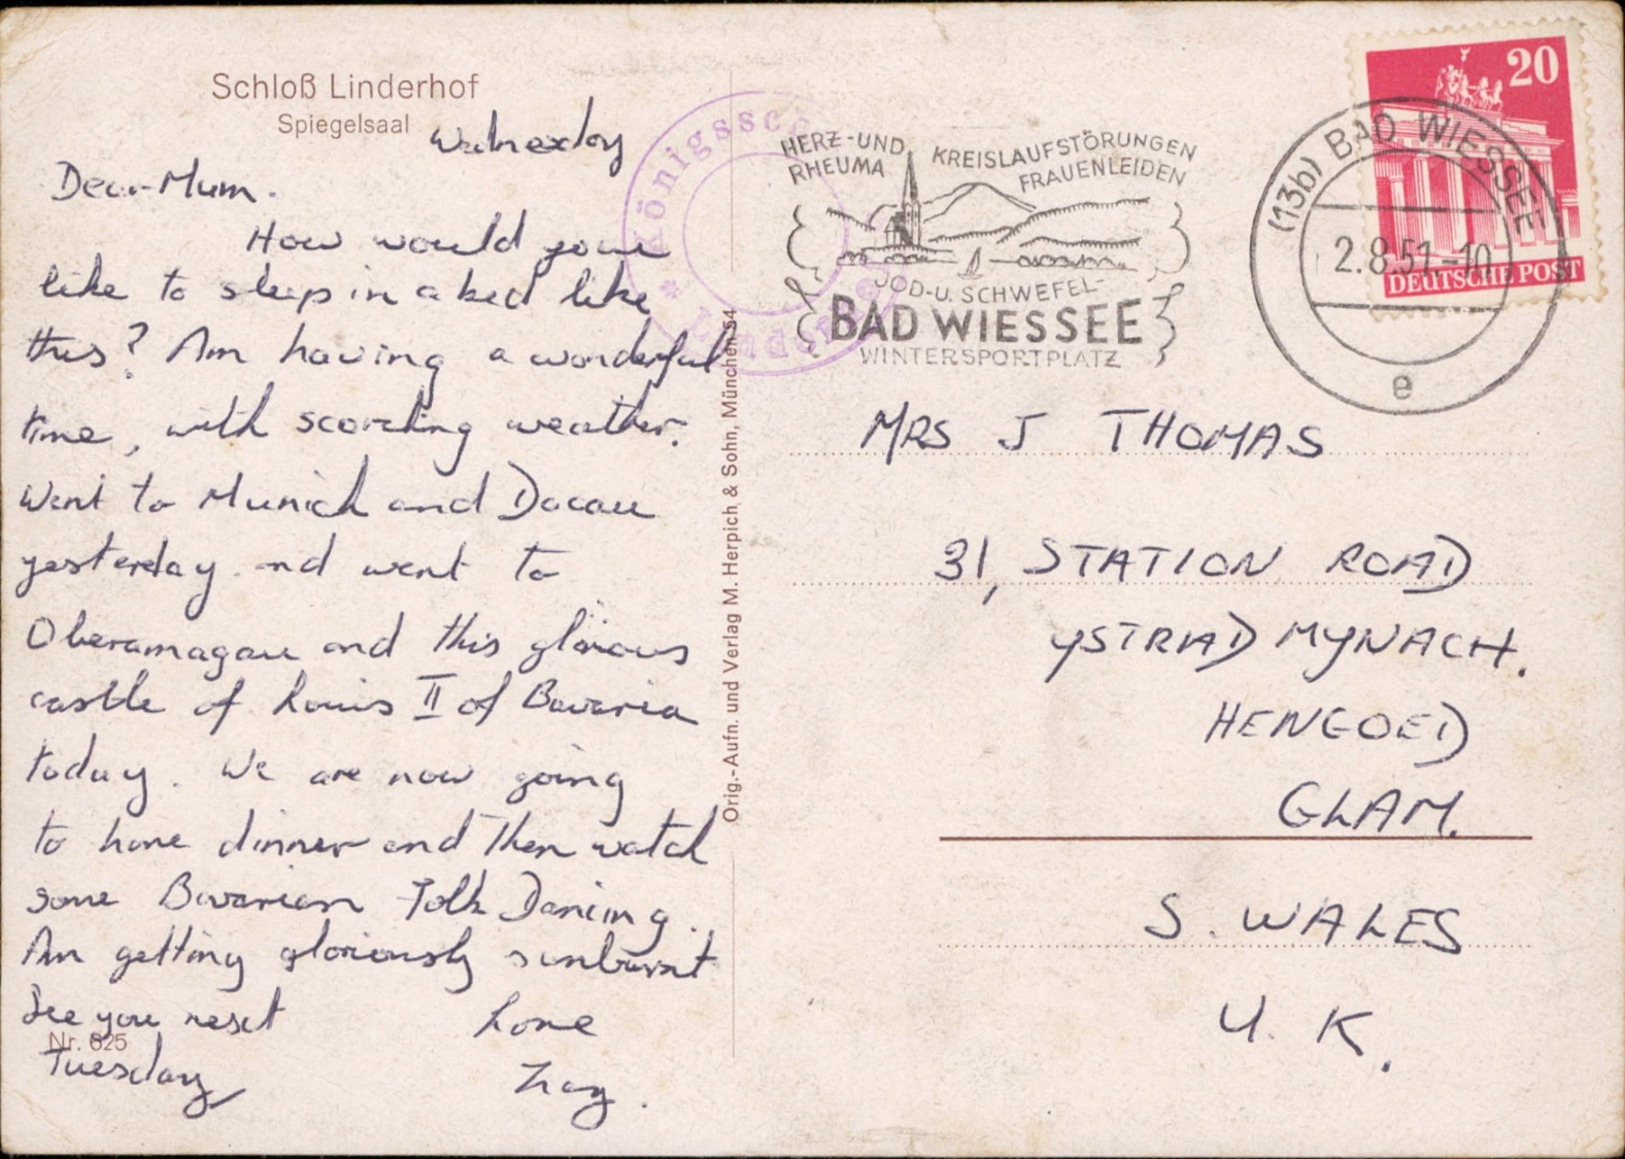 Schloß Linderhof
Spiegelsaal
Wednesday
Dear Mum.
How would you
like to sleep in a bed like
this? Am having a wonderful
time, with scorching weather.
Went to Munich and Dacau
yesterday and went to
Oberamagau and this glorious
castle of Louis II of Bavaria
today. We are now going
to have dinner and then watch
some Bavarian Folk Dancing.
Am getting gloriously sunburnt
See you next
Tuesday
Love
Nr. 825
Orig.-Aufn. und Verlag M. Herpich & Sohn, München 54
Königssc
HERZ-UND
RHEUMA
KREISLAUFSTÖRUNGEN
FRAUENLEIDEN
JOD-U. SCHWEFEL-
BAD WIESSEE
WINTERSPORTPLATZ
(13b) BAD WIESSEE
2.8.51.-10
e
20
DEUTSCHE POST
MRS J THOMAS
31, STATION ROAD
YSTRAD MYNACH.
HENGOED
GLAM.
S. WALES
U. K.